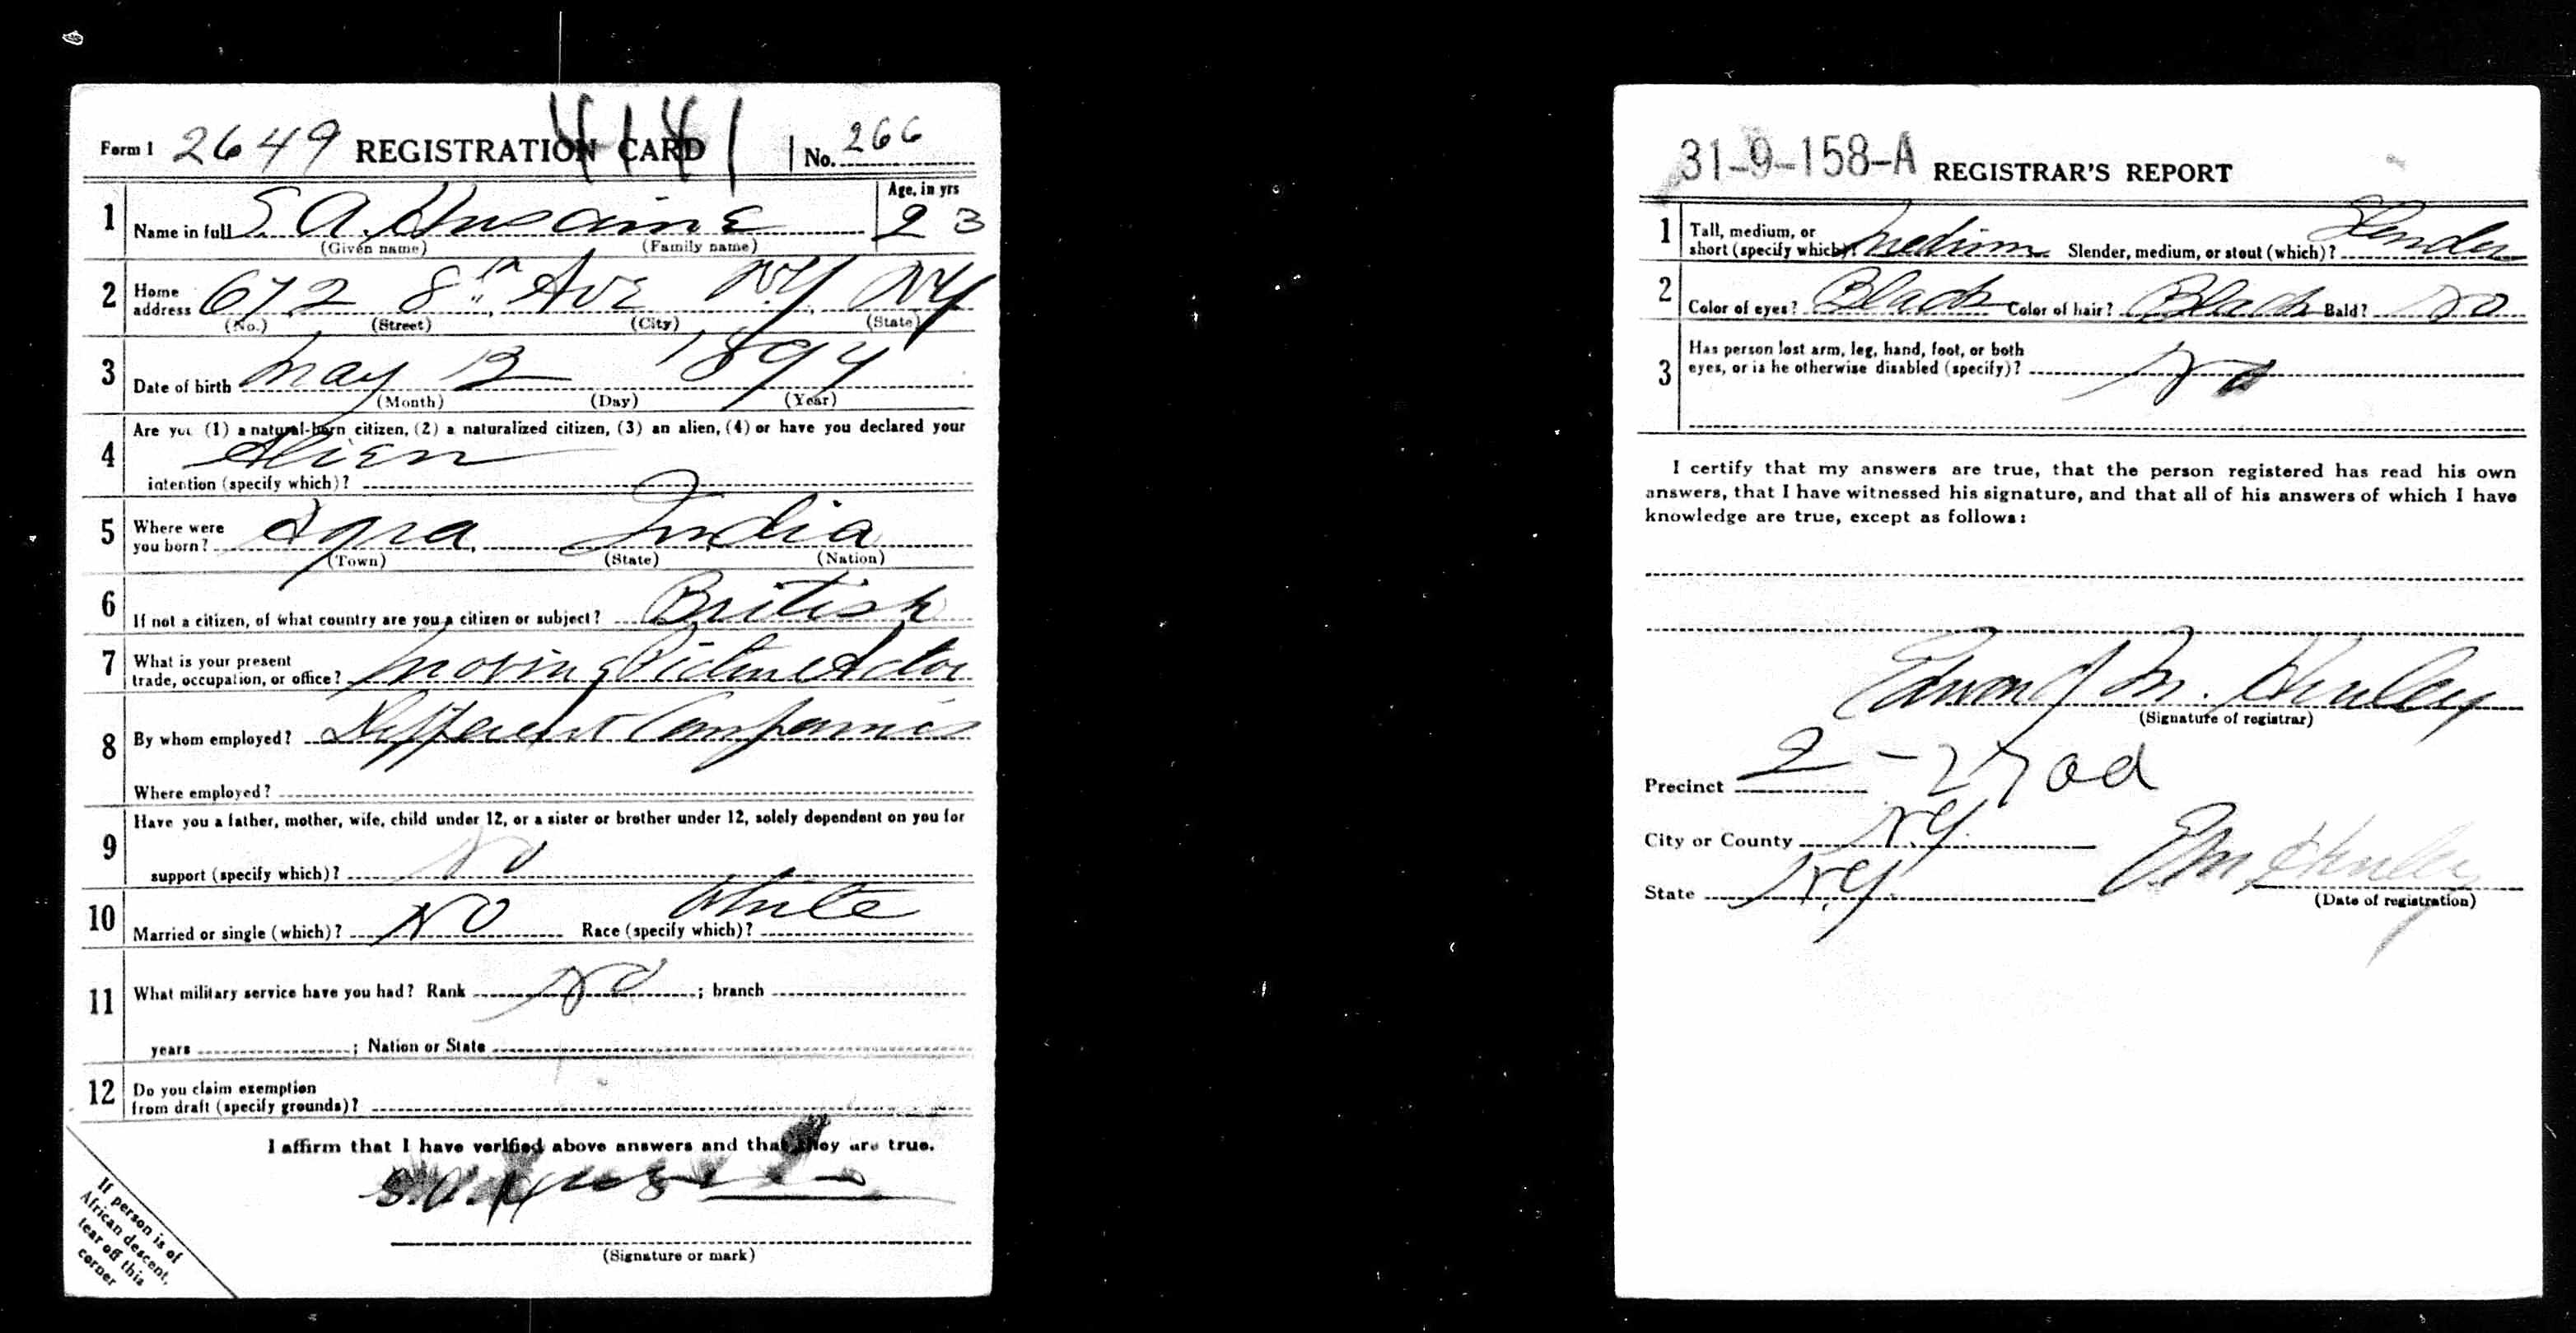 4141
Form 1 2649 REGISTRATION CARD No. 266
1 Name in full S. A. Husaine Age, in yrs 23
(Given name) (Family name)
2 Home address 672 8th Ave NY NY
(No.) (Street) (City) (State)
3 Date of birth May 12 1894
(Month) (Day) (Year)
4 Are you (1) a natural-born citizen, (2) a naturalized citizen, (3) an alien, (4) or have you declared your
Alien
intention (specify which)?
5 Where were you born? Agra, India
(Town) (State) (Nation)
6 If not a citizen, of what country are you a citizen or subject? British
7 What is your present trade, occupation, or office? Moving Picture Actor
8 By whom employed? Different Companies
Where employed?
9 Have you a father, mother, wife, child under 12, or a sister or brother under 12, solely dependent on you for
support (specify which)? No
10 Married or single (which)? No Race (specify which)? White
11 What military service have you had? Rank No ; branch
years ; Nation or State
12 Do you claim exemption
from draft (specify grounds)?
I affirm that I have verified above answers and that they are true.
(Signature or mark)
If person is of
African descent,
tear off this
corner
31-9-158-A REGISTRAR'S REPORT
1 Tall, medium, or short (specify which)? Medium Slender, medium, or stout (which)? Slender
2 Color of eyes? Black Color of hair? Black Bald? No
3 Has person lost arm, leg, hand, foot, or both
eyes, or is he otherwise disabled (specify)? No
I certify that my answers are true, that the person registered has read his own
answers, that I have witnessed his signature, and that all of his answers of which I have
knowledge are true, except as follows:
Edward M. Henley
(Signature of registrar)
Precinct 2 - 27 ad
City or County N.Y.
State N.Y. E M. Henley
(Date of registration)